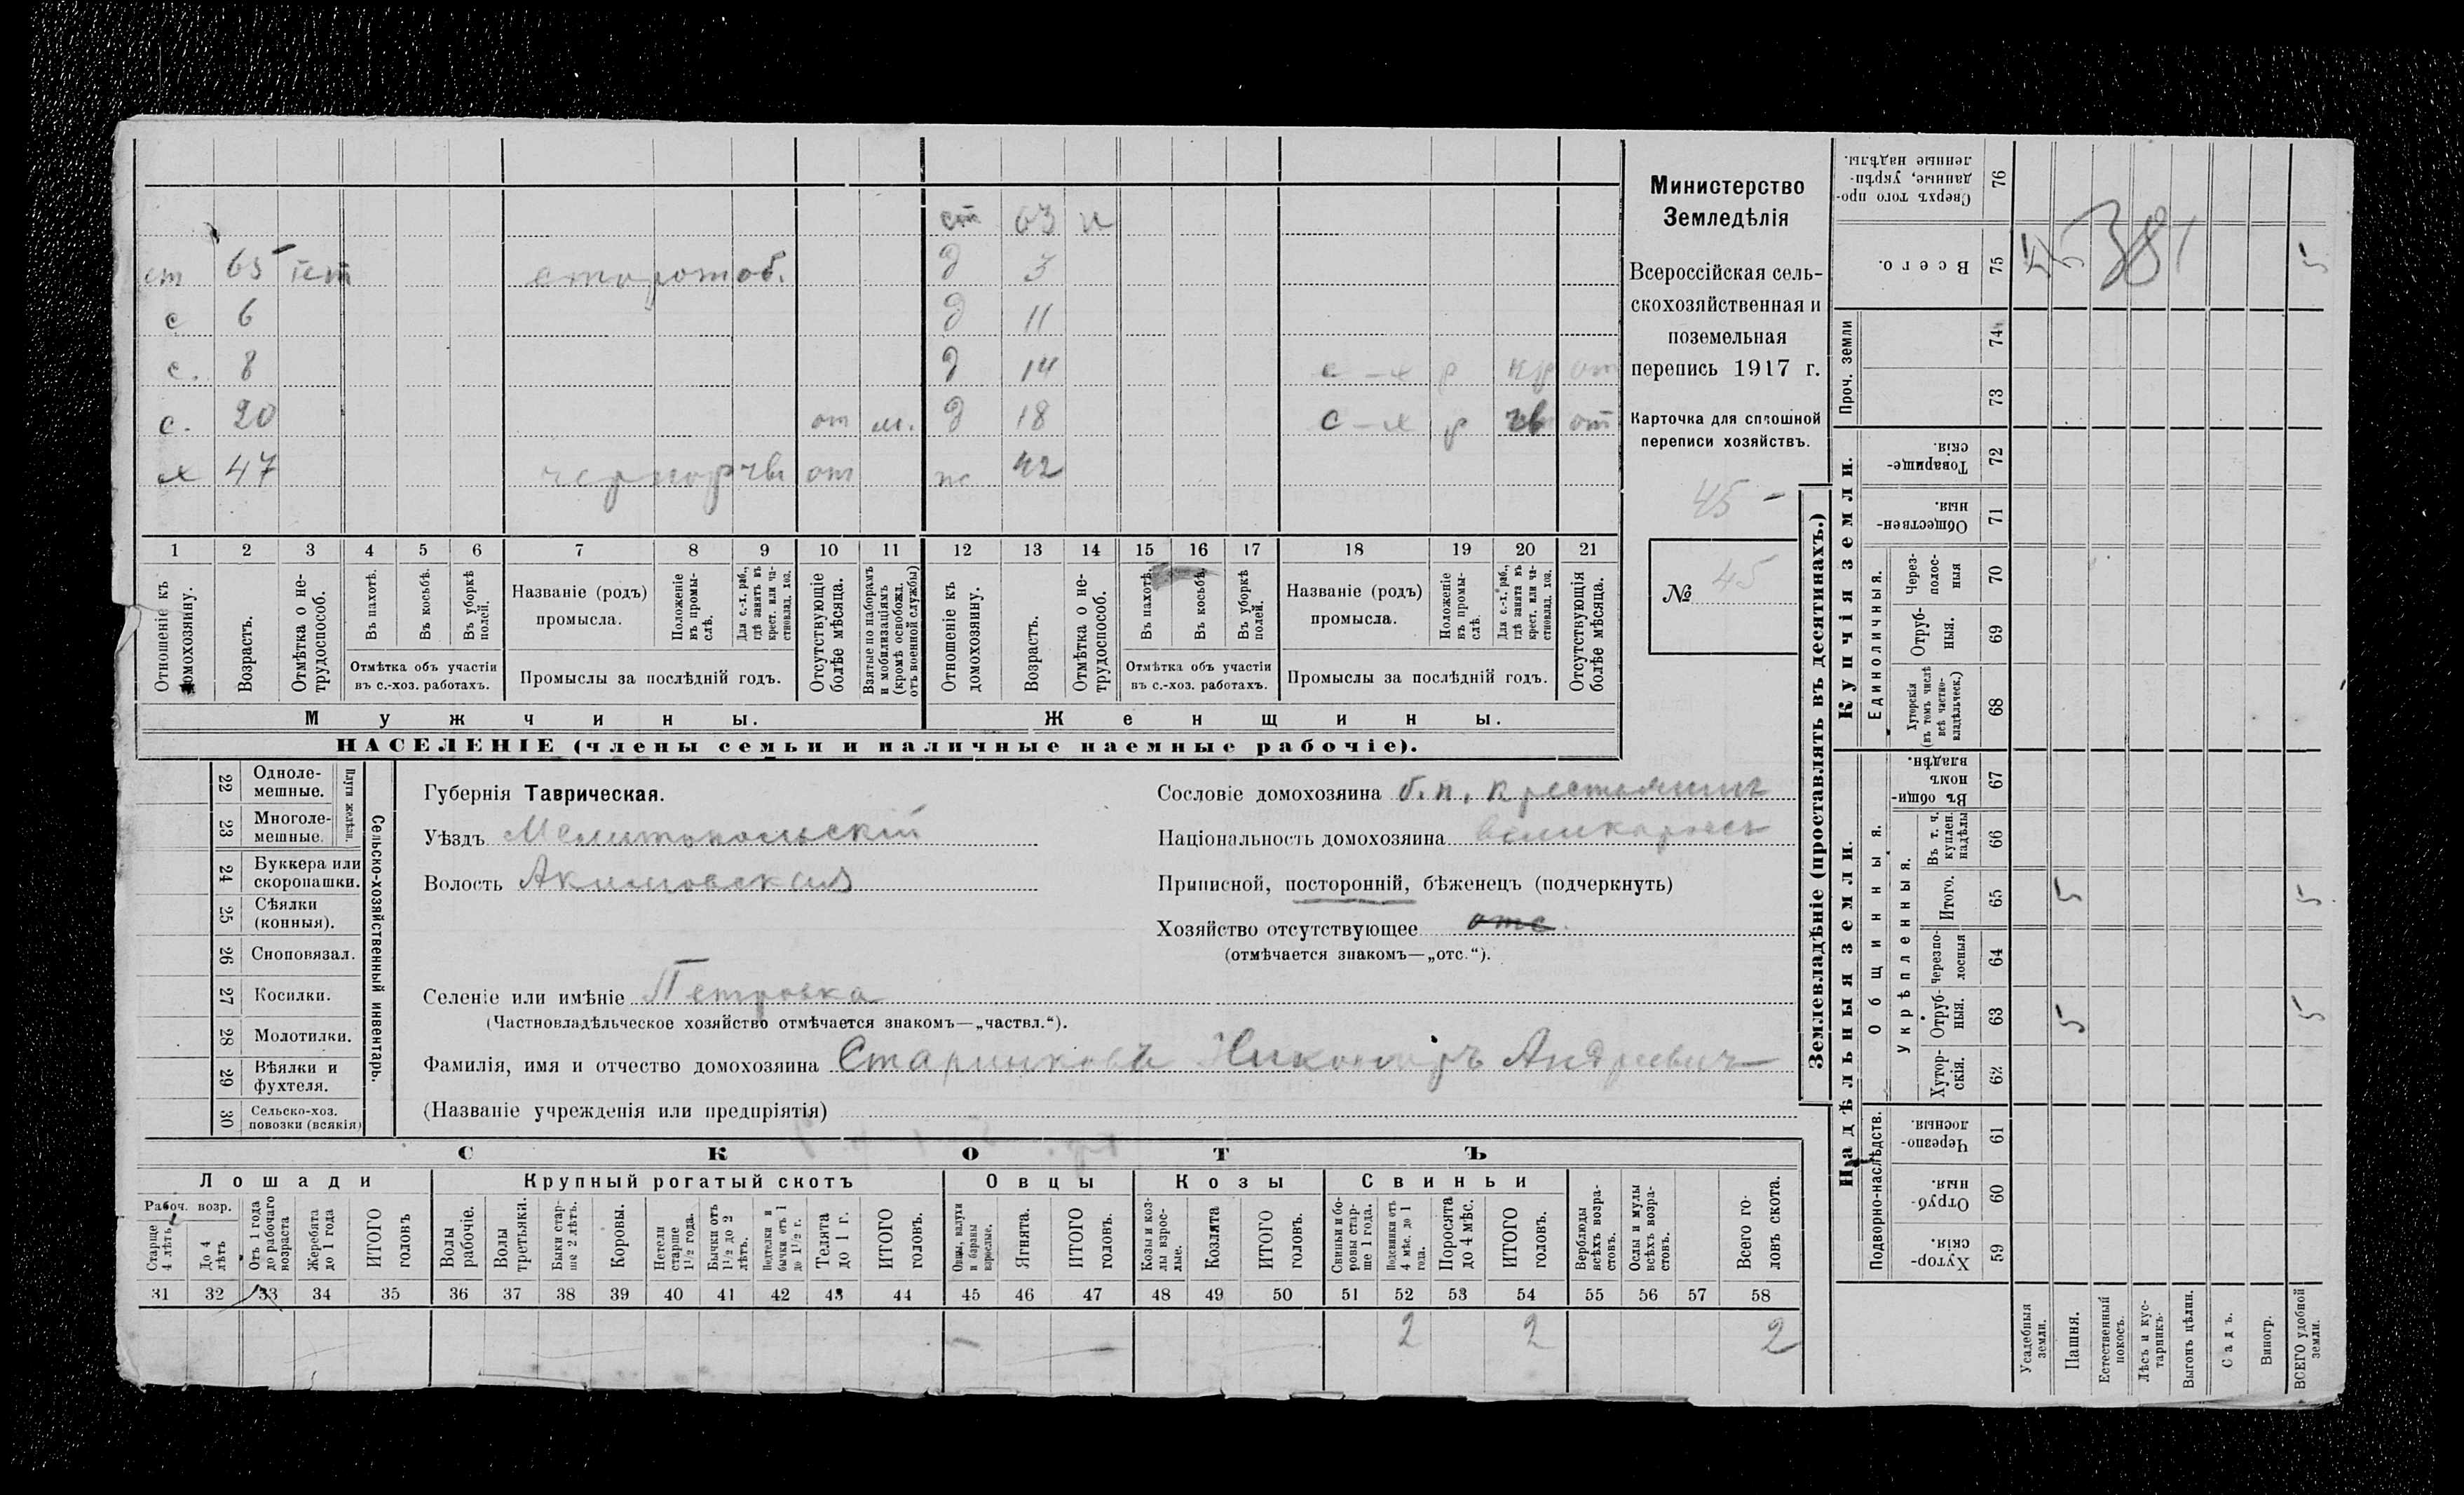 ст 63 н
ст 65 лет сторож об. д 3
с 6 д 11
с. 8 д 14 с-х р кр от
с. 20 от м. д 18 с-х р чв от
х 47 чернор чв от ж 42
1 2 3 4 5 6 7 8 9 10 11 12 13 14 15 16 17 18 19 20 21
Отношеніе къ домохозяину.
Возрастъ.
Отмѣтка о нетрудоспособ.
Въ пахотѣ.
Въ косьбѣ.
Въ уборкѣ полей.
Отмѣтка объ участіи въ с.-хоз. работахъ.
Названіе (родъ) промысла.
Положеніе въ промыслѣ.
Для с.-х. раб., гдѣ занятъ въ крест. или частновлад. хоз.
Промыслы за послѣдній годъ.
Отсутствующіе болѣе мѣсяца.
Взятые по наборамъ и мобилизаціямъ (кромѣ освобожд. отъ военной службы)
Отношеніе къ домохозяину.
Возрастъ.
Отмѣтка о нетрудоспособ.
Въ пахотѣ.
Въ косьбѣ.
Въ уборкѣ полей.
Отмѣтка объ участіи въ с.-хоз. работахъ.
Названіе (родъ) промысла.
Положеніе въ промыслѣ.
Для с.-х. раб., гдѣ занята въ крест. или частновлад. хоз.
Промыслы за послѣдній годъ.
Отсутствующія болѣе мѣсяца.
Мужчины. Женщины.
НАСЕЛЕНІЕ (члены семьи и наличные наемные рабочіе).
Министерство
Земледѣлія
Всероссійская сель-
скохозяйственная и
поземельная
перепись 1917 г.
Карточка для сплошной
переписи хозяйствъ.
45 -
№ 45
22 Однолемешные.
23 Многолемешные.
Плуги желѣзн.
24 Буккера или скоропашки.
25 Сѣялки (конныя).
26 Сноповязал.
27 Косилки.
28 Молотилки.
29 Вѣялки и фухтеля.
30 Сельско-хоз. повозки (всякія)
Сельско-хозяйственный инвентарь.
Губернія Таврическая.
Уѣздъ Мелитопольскій
Волость Акимовская
Сословіе домохозяина б. п. крестьянинъ
Національность домохозяина великороссъ
Приписной, посторонній, бѣженецъ (подчеркнуть)
Хозяйство отсутствующее отс
(отмѣчается знакомъ—„отс.“).
Селеніе или имѣніе Петровка
(Частновладѣльческое хозяйство отмѣчается знакомъ—„частвл.“).
Фамилія, имя и отчество домохозяина Стариковъ Никоноръ Андреевич
(Названіе учрежденія или предпріятія)
СКОТЪ
Лошади Крупный рогатый скотъ Овцы Козы Свиньи
Рабоч. возр.
Старше 4 лѣтъ
До 4 лѣтъ
Отъ 1 года до рабочаго возраста
Жеребята до 1 года
ИТОГО головъ
Волы рабочіе.
Волы третьяки.
Быки старше 2 лѣтъ.
Коровы.
Нетели старше 1½ года.
Бычки отъ 1½ до 2 лѣтъ.
Подтелки и бычки отъ 1 до 1½ г.
Телята до 1 г.
ИТОГО головъ.
Овцы, валухи и бараны взрослые.
Ягнята.
ИТОГО головъ.
Козы и козлы взрослые.
Козлята
ИТОГО головъ.
Свиньи и боровы старше 1 года.
Подсвинки отъ 4 мѣс. до 1 года.
Поросята до 4 мѣс.
ИТОГО головъ.
Верблюды всѣхъ возрастовъ.
Ослы и мулы всѣхъ возрастовъ.
Всего головъ скота.
31 32 33 34 35 36 37 38 39 40 41 42 43 44 45 46 47 48 49 50 51 52 53 54 55 56 57 58
2 2 2
Землевладѣніе (проставлять въ десятинахъ.)
76 Сверхъ того проданные, укрѣпленные надѣлы.
75 Всего. 5 5
381
Проч. земли 74 73
Купчія земли.
72 Товарищескія.
71 Общественныя.
Единоличныя.
70 Черезполосныя
69 Отрубныя.
68 Хуторскія (въ томъ числѣ всѣ частновладѣльческ.)
Надѣльныя земли.
Общинныя.
67 Въ общинномъ владѣн.
Укрѣпленныя.
66 Въ т. ч. куплен. надѣлы
65 Итого. 5 5
64 Черезполосныя
63 Отрубныя. 5 5
62 Хуторскія.
Подворно-наслѣдств.
61 Черезполосныя.
60 Отрубныя.
59 Хуторскія.
Усадебныя земли.
Пашня.
Естественный покосъ.
Лѣсъ и кустарникъ.
Выгонъ цѣлин.
Садъ.
Виногр.
ВСЕГО удобной земли.